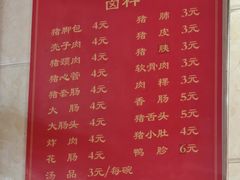 卤种
猪脚包 4元
壳子肉 4元
猪颈肉 4元
猪心管 4元
猪套肠 4元
大肠 4元
大肠头 4元
炸肉 4元
花肠 4元
汤品 3元/每碗
猪肺 3元
猪皮 3元
猪胰 3元
软骨肉 3元
肉粿 3元
香肠 5元
猪舌头 5元
猪小肚 4元
鸭胗 6元